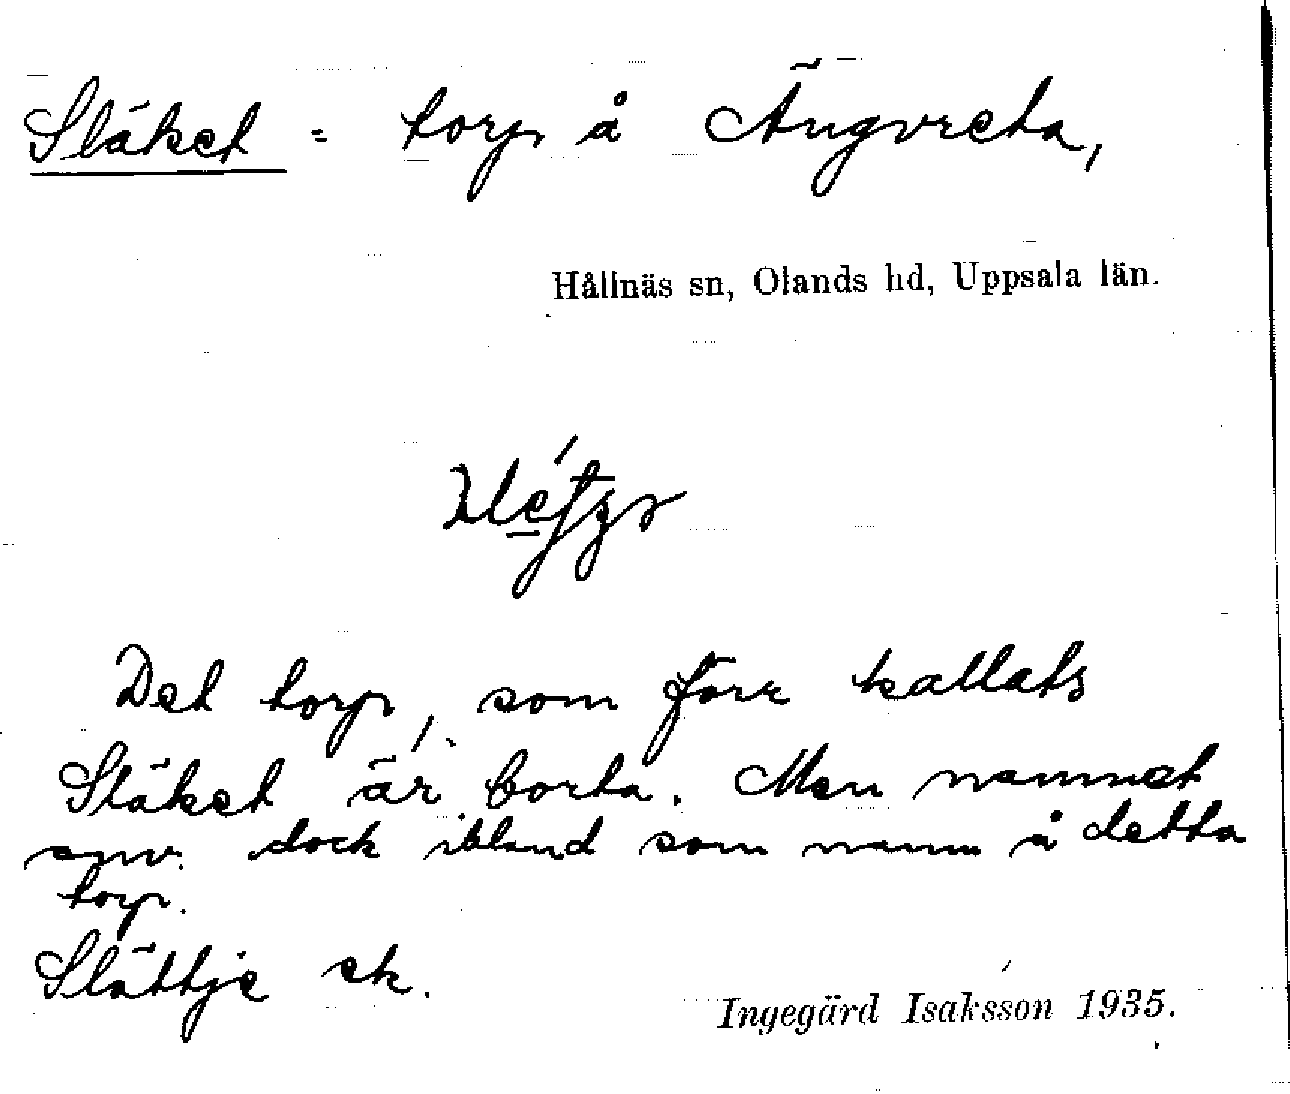 Släket = torp å Ängvreta,
Hållnäs sn, Olands hd, Uppsala län.
Det torp, som förr kallats
Släket är borta. Men namnet
anv. dock ibland som namn å detta
torp.
Slättje ek.
Ingegärd Isaksson 1935.